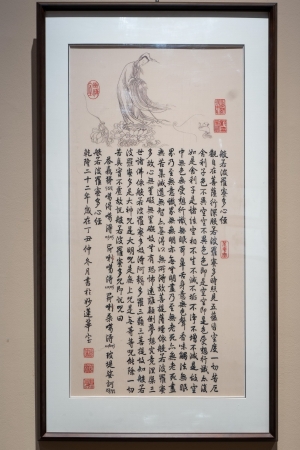 般若波羅蜜多心經
觀自在菩薩行深般若波羅蜜多時照見五蘊皆空度一切苦厄
舍利子色不異空空不異色色即是空空即是色受想行識亦復
如是舍利子是諸法空相不生不滅不垢不淨不增不減是故空
中無色無受想行識無眼耳鼻舌身意無色聲香味觸法無眼
界乃至無意識界無無明亦無無明盡乃至無老死亦無老死盡
無苦集滅道無智亦無得以無所得故菩提薩埵依般若波羅蜜
多故心無罣礙無罣礙故無有恐怖遠離顛倒夢想究竟涅槃三
世諸佛依般若波羅蜜多故得阿耨多羅三藐三菩提故知般若
波羅蜜多是大神咒是大明咒是無上咒是無等等咒能除一切
苦真實不虛故說般若波羅蜜多咒即說咒曰
般若波羅蜜多心經
乾隆二十二年歲在丁丑仲冬月書於妙蓮華室